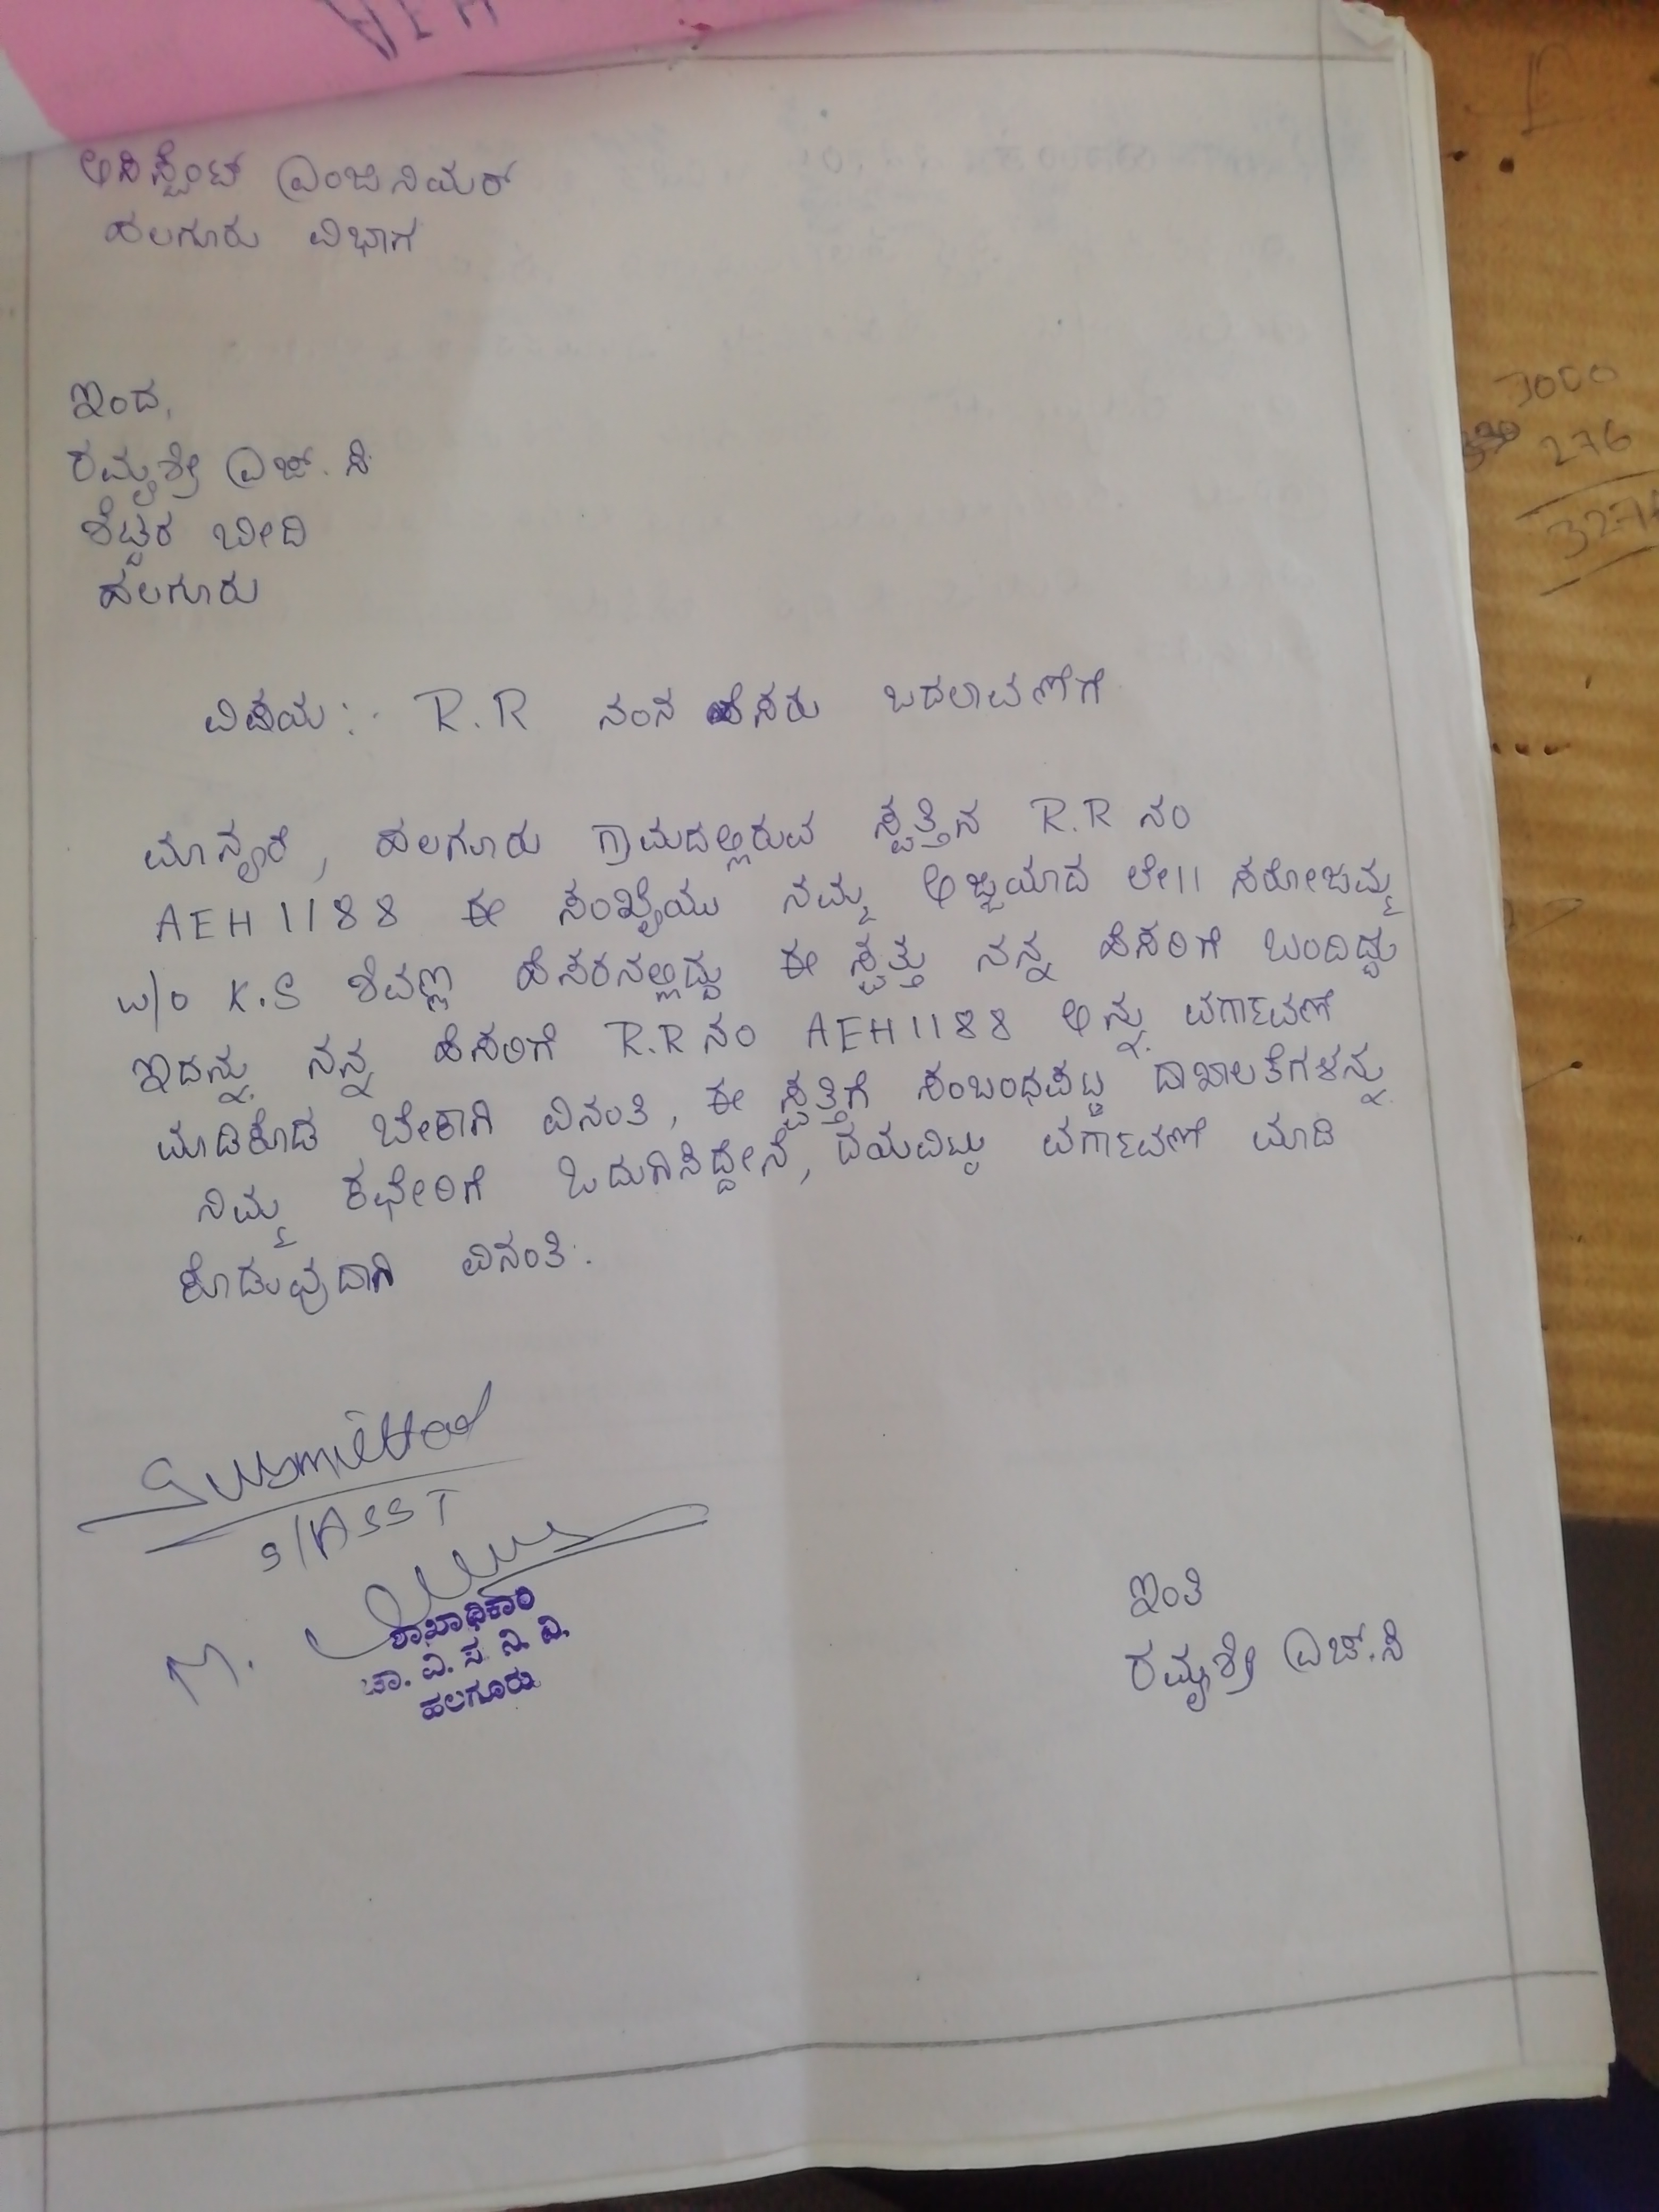 ಅಸಿಸ್ಟೆಂಟ್ ಎಂಜಿನಿಯರ್
ಹಲಗೂರು ವಿಭಾಗ
ಇಂದ,
ರಮ್ಯಶ್ರೀ ಎಚ್. ಸಿ
ಶೆಟ್ಟರ ಬೀದಿ
ಹಲಗೂರು
ವಿಷಯ:- R.R ನಂನ ಹೆಸರು ಬದಲಾವಣೆಗೆ
ಮಾನ್ಯರೆ, ಹಲಗೂರು ಗ್ರಾಮದಲ್ಲಿರುವ ಸ್ವತ್ತಿನ R.R ನಂ
AEH 1188 ಈ ಸಂಖ್ಯೆಯು ನಮ್ಮ ಅಜ್ಜಿಯಾದ ಲೇ|| ಸರೋಜಮ್ಮ
w/o K.S ಶಿವಣ್ಣ ಹೆಸರನಲ್ಲಿದ್ದು ಈ ಸ್ವತ್ತು ನನ್ನ ಹೆಸರಿಗೆ ಬಂದಿದ್ದು
ಇದನ್ನು ನನ್ನ ಹೆಸರಿಗೆ R.R ನಂ AEH 1188 ಅನ್ನು ವರ್ಗಾವಣೆ
ಮಾಡಿಕೊಡ ಬೇಕಾಗಿ ವಿನಂತಿ, ಈ ಸ್ವತ್ತಿಗೆ ಸಂಬಂಧಪಟ್ಟ ದಾಖಾಲತೆಗಳನ್ನು
ನಿಮ್ಮ ಕಛೇರಿಗೆ ಒದುಗಿಸಿದ್ದೇನೆ, ದಯವಿಟ್ಟು ವರ್ಗಾವಣೆ ಮಾಡಿ
ಕೊಡುವುದಾಗಿ ವಿನಂತಿ.
Submitted
S/ASST
M.
ಶಾಖಾಧಿಕಾರಿ
ಚಾ. ವಿ. ಸ. ನಿ. ನಿ.
ಹಲಗೂರು
ಇಂತಿ
ರಮ್ಯಶ್ರೀ ಎಚ್.ಸಿ
3000
276